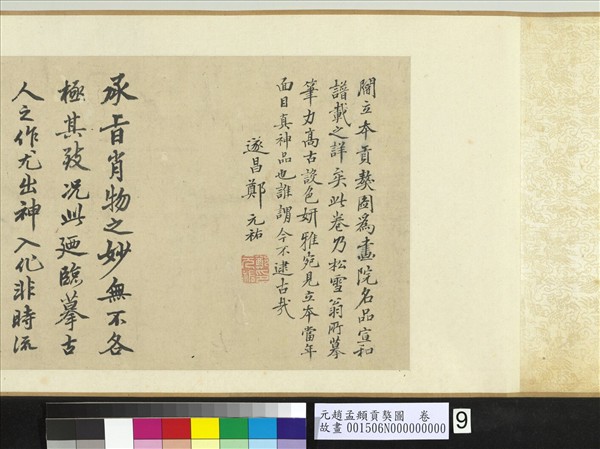 閻立本貢獒圖為畫院名品宣和
譜載之詳矣此卷乃松雪翁所摹
筆力高古設色妍雅宛見立本當年
面目真神品也誰謂今不逮古哉
遂昌鄭元祐
承旨肖物之妙無不各
極其致況此迺臨摹古
人之作尤出神入化非時流
元趙孟頫貢獒圖 卷
故畫001506N000000000
9